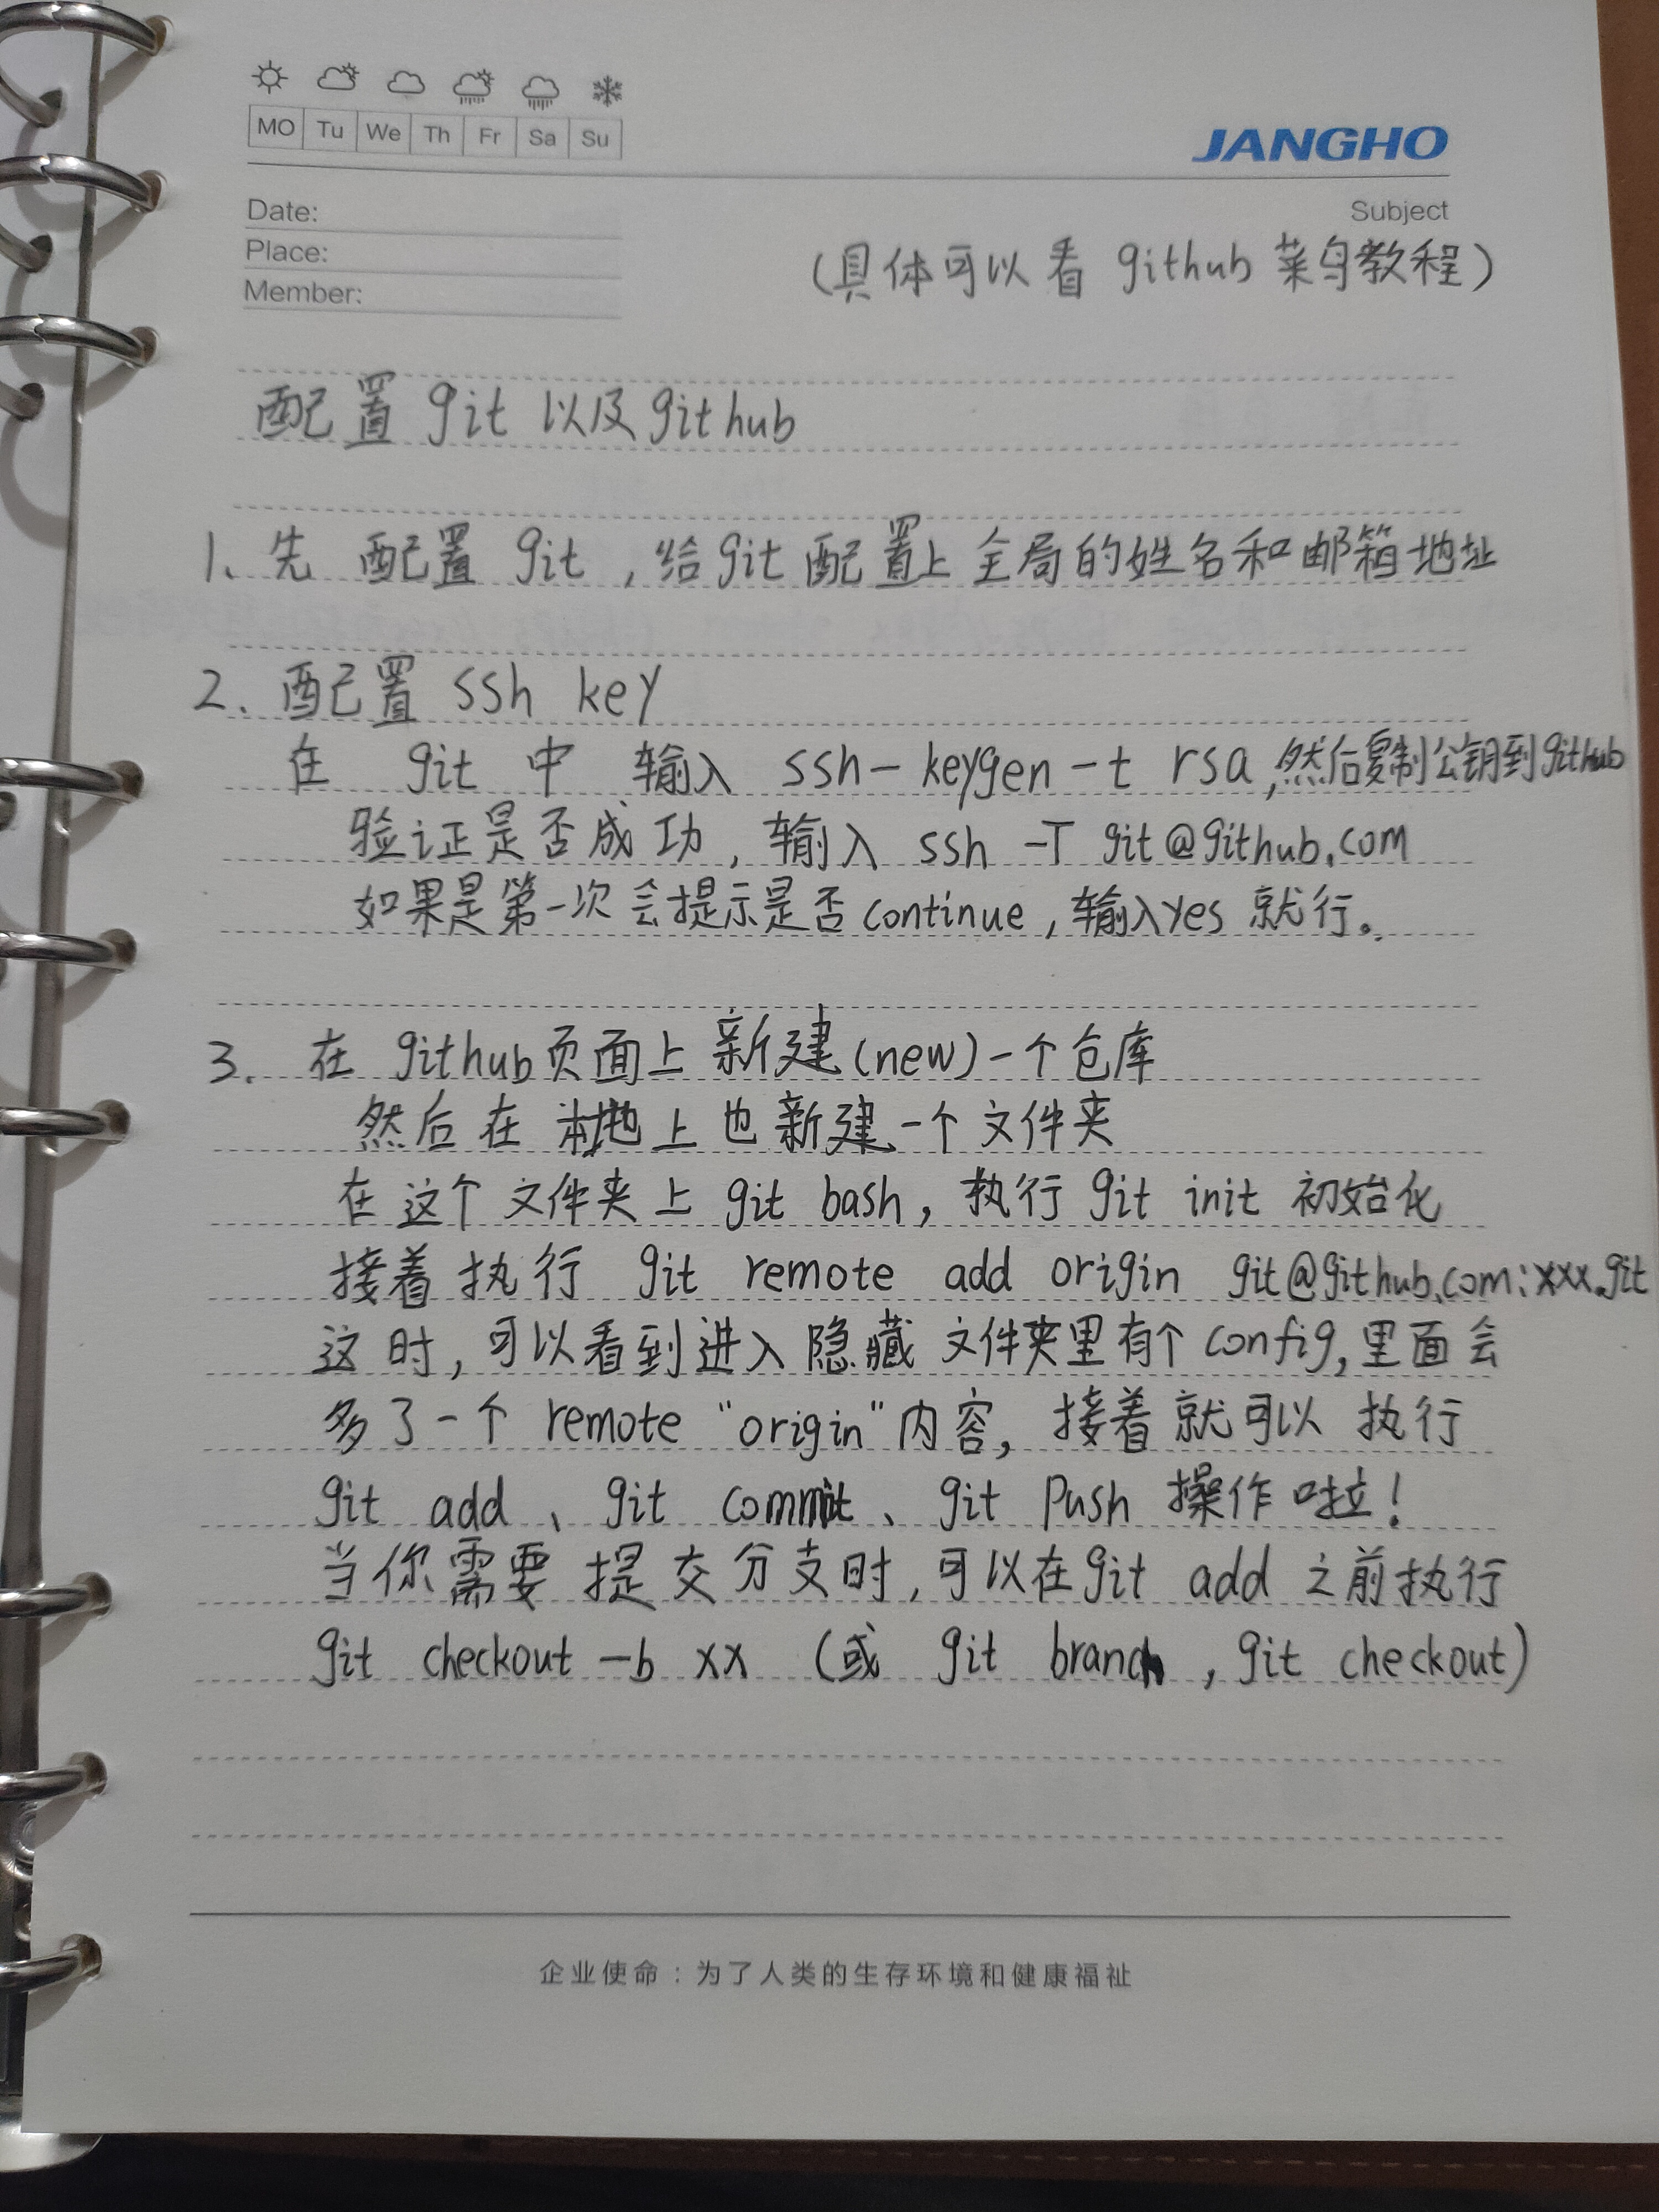 MO Tu We Th Fr Sa Su
JANGHO
Date:
Subject
Place:
Member:
(具体可以看 github 菜鸟教程)
配置 git 以及github
1. 先 配置 git ,给git配置上全局的姓名和邮箱地址
2. 配置 ssh key
在 git 中 输入 ssh-keygen -t rsa,然后复制公钥到github
验证是否成功, 输入 ssh -T git@github.com
如果是第一次会提示是否continue,输入yes 就行。
3. 在 github页面上新建(new)一个仓库
然后在本地上也新建一个文件夹
在这个文件夹上 git bash, 执行 git init 初始化
接着执行 git remote add origin git@github.com:xxx.git
这时,可以看到进入隐藏文件夹里有个config,里面会
多了一个 remote "origin"内容, 接着就可以执行
git add 、git commit 、git push 操作啦!
当你需要提交分支时,可以在git add 之前执行
git checkout -b xx (或 git branch , git checkout)
企业使命:为了人类的生存环境和健康福祉